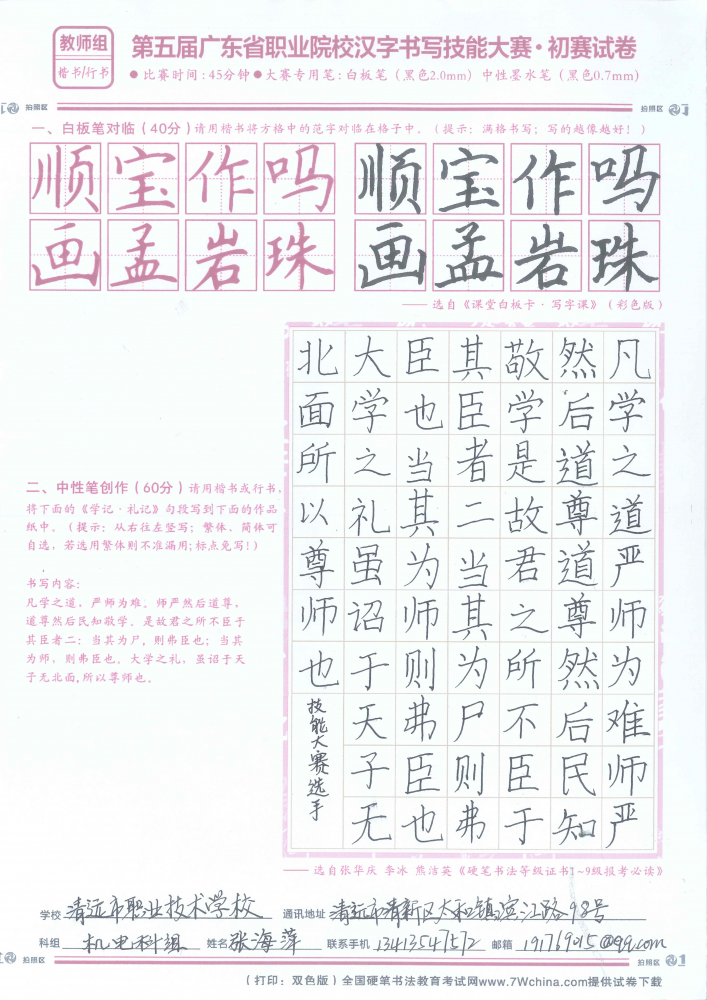 教师组
楷书/行书
第五届广东省职业院校汉字书写技能大赛·初赛试卷
●比赛时间:45分钟●大赛专用笔:白板笔(黑色2.0mm)中性墨水笔(黑色0.7mm)
拍照区
拍照区
一、白板笔对临(40分)请用楷书将方格中的范字对临在格子中。(提示:满格书写;写的越像越好!)
顺宝作吗 顺宝作吗
画孟岩珠 画孟岩珠
——选自《课堂白板卡·写字课》(彩色版)
二、中性笔创作(60分)请用楷书或行书,
将下面的《学记·礼记》句段写到下面的作品
纸中。(提示:从右往左竖写;繁体、简体可
自选,若选用繁体则不准漏用;标点免写!)
书写内容:
凡学之道,严师为难。师严然后道尊,
道尊然后民知敬学。是故君之所不臣于
其臣者二:当其为尸,则弗臣也;当其
为师,则弗臣也。大学之礼,虽诏于天
子无北面,所以尊师也。
凡学之道严师为难师严
然后道尊道尊然后民知
敬学是故君之所不臣于
其臣者二当其为尸则弗
臣也当其为师则弗臣也
大学之礼虽诏于天子无
北面所以尊师也
技能大赛选手
——选自张华庆 李冰 熊洁英《硬笔书法等级证书1~9级报考必读》
学校 清远市职业技术学校 通讯地址 清远市清新区太和镇滨江路98号
科组 机电科组 姓名 张海萍 联系手机 13413547572 邮箱 191769015@qq.com
拍照区
拍照区
(打印:双色版)全国硬笔书法教育考试网www.7Wchina.com提供试卷下载